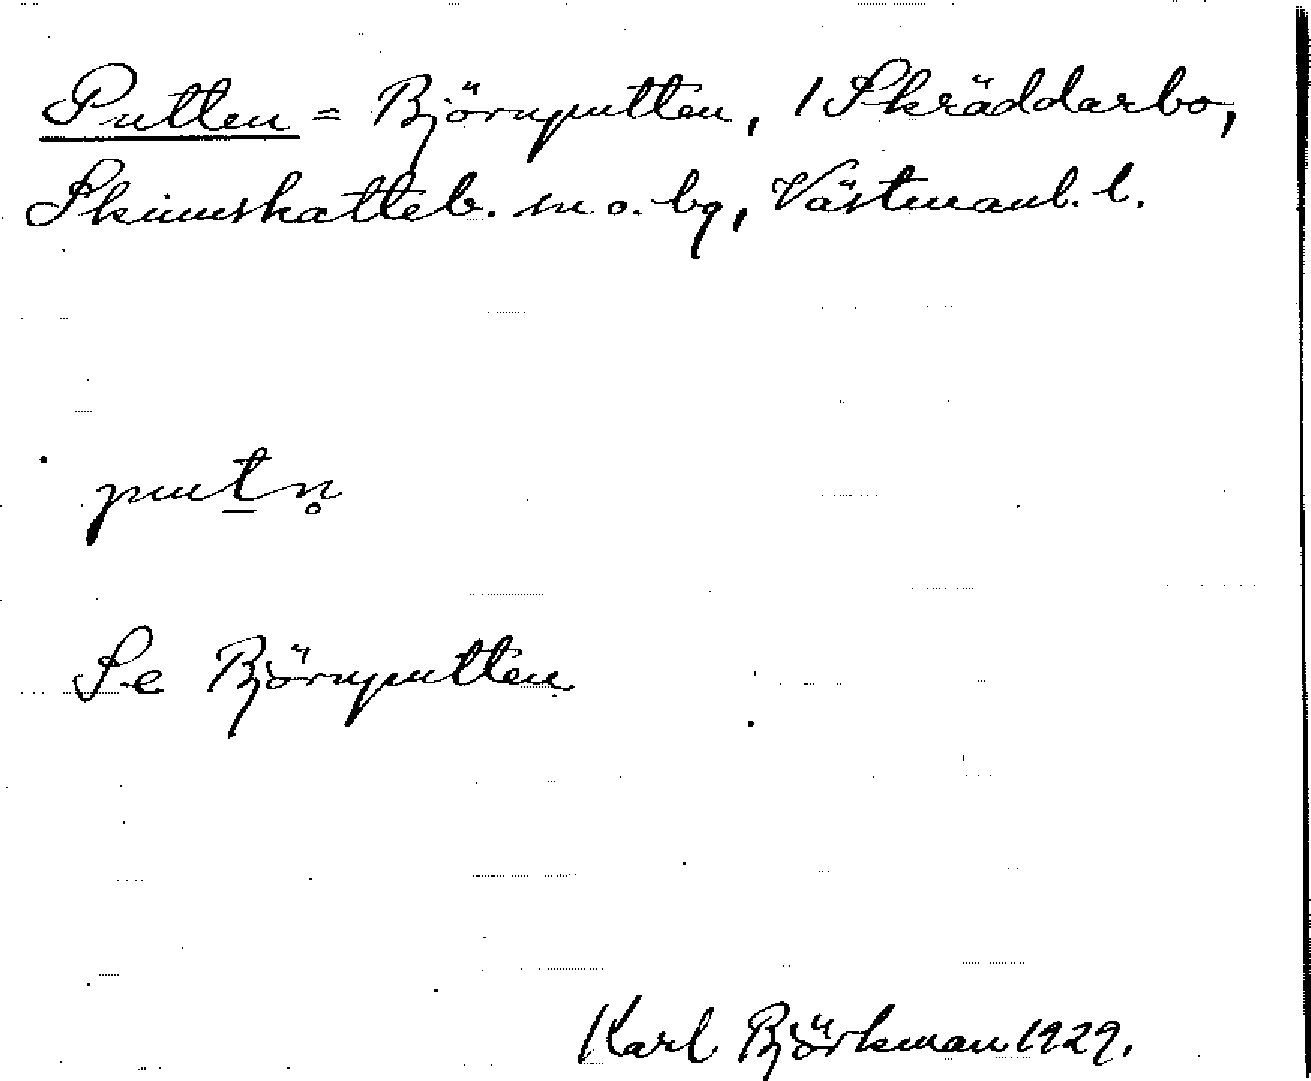 Putten = Björnputten, 1 Skräddarbo,
Skinnskatteb. sn o. bg, Västmanl. l.
put̲n̥
Se Björnputten
Karl Björkman 1929.